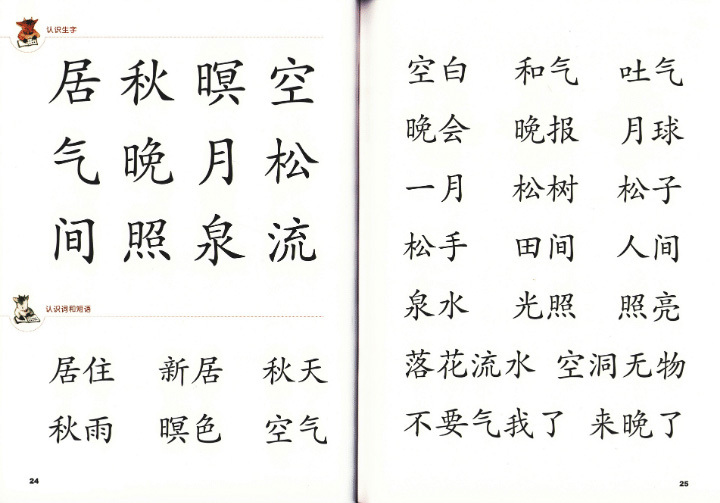 认识生字
居 秋 暝 空
气 晚 月 松
间 照 泉 流
认识词和短语
居住 新居 秋天
秋雨 暝色 空气
24
空白 和气 吐气
晚会 晚报 月球
一月 松树 松子
松手 田间 人间
泉水 光照 照亮
落花流水 空洞无物
不要气我了 来晚了
25